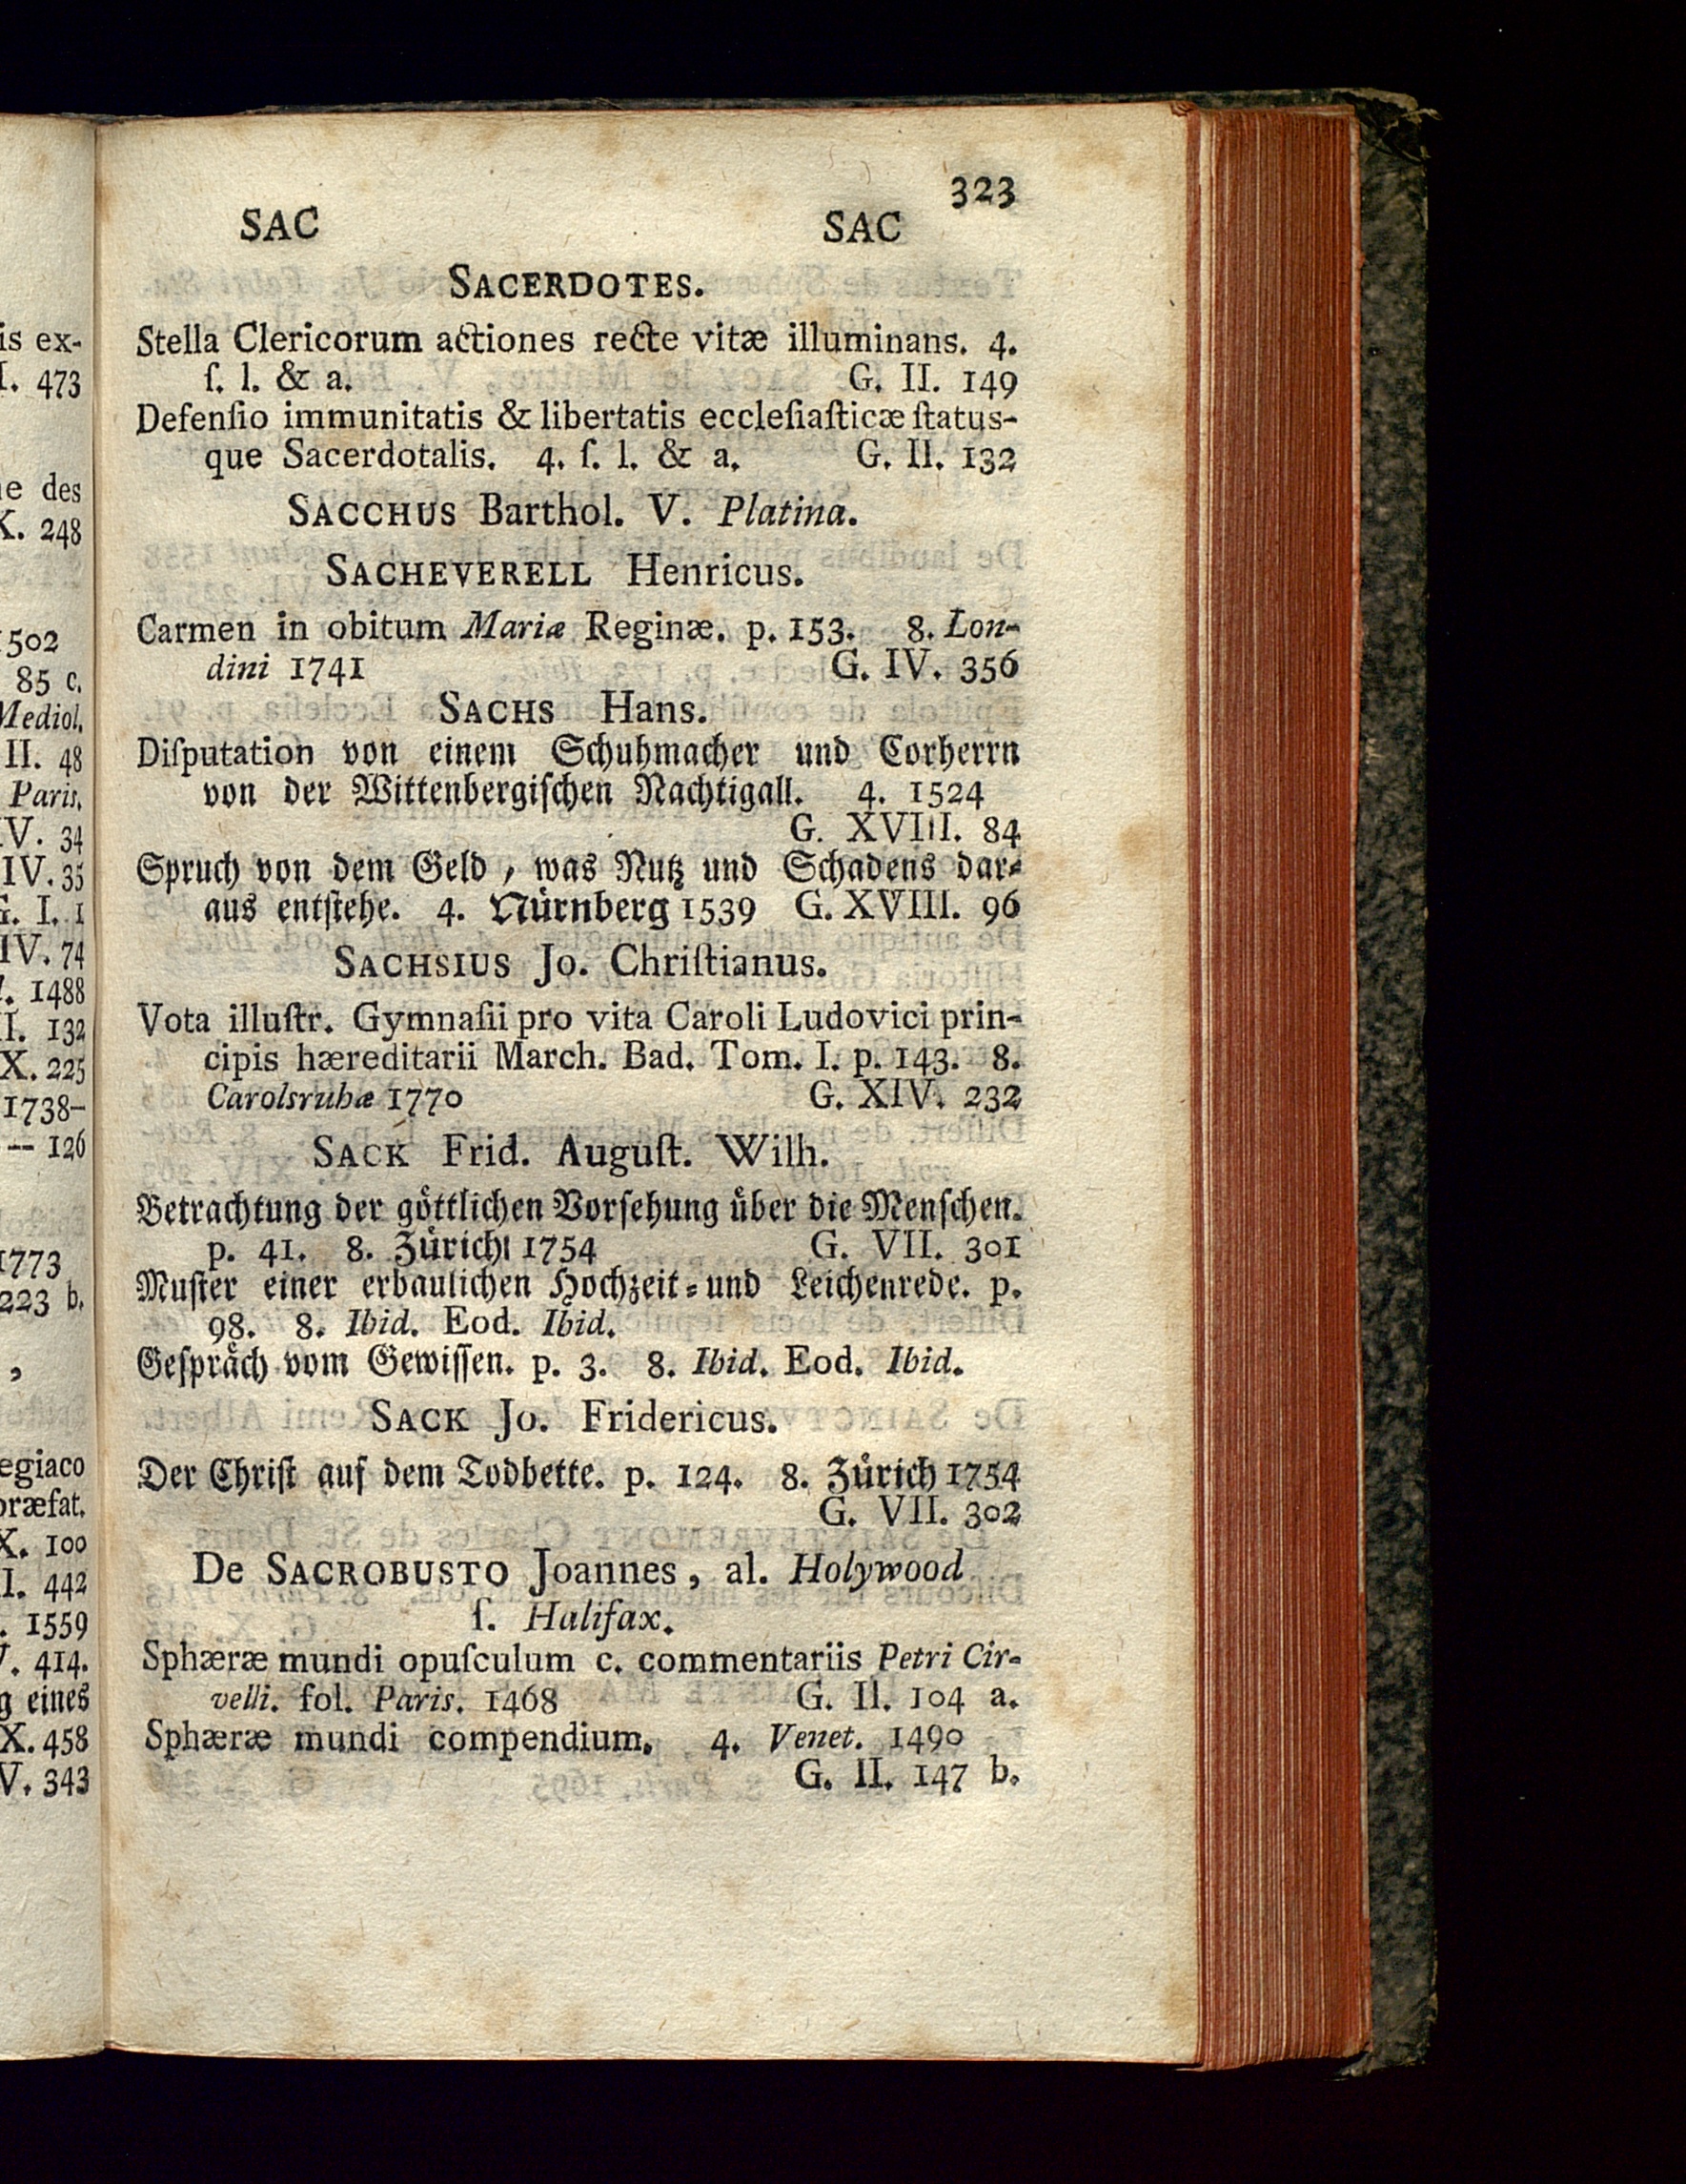 is ex-
I. 473
ne des
X. 248
1502
85 c.
Mediol.
II. 48
Paris.
IV. 34
IV. 35
G. I. 1
IV. 74
1488
II. 132
X. 225
1738-
— 126
1773
223 b.
,
egiaco
præfat.
X. 100
I. 442
. 1559
V. 414.
g eines
X. 458
V. 343
323
SAC SAC
SACERDOTES.
Stella Clericorum actiones recte vitæ illuminans. 4.
ſ. l. & a. G. II. 149
Defenſio immunitatis & libertatis eccleſiaſticæ ſtatus-
que Sacerdotalis. 4. ſ. l. & a. G. II. 132
SACCHUS Barthol. V. Platina.
SACHEVERELL Henricus.
Carmen in obitum Mariæ Reginæ. p. 153. 8. Lon-
dini 1741 G. IV. 356
SACHS Hans.
Diſputation von einem Schuhmacher und Corherrn
von der Wittenbergiſchen Nachtigall. 4. 1524
G. XVIII. 84
Spruch von dem Geld, was Nutz und Schadens dar-
aus entſtehe. 4. Nürnberg 1539 G. XVIII. 96
SACHSIUS Jo. Chriſtianus.
Vota illuſtr. Gymnaſii pro vita Caroli Ludovici prin-
cipis hæreditarii March. Bad. Tom. I. p. 143. 8.
Carolsruhæ 1770 G. XIV. 232
SACK Frid. Auguſt. Wilh.
Betrachtung der goͤttlichen Vorſehung uͤber die Menſchen.
p. 41. 8. Zürich 1754 G. VII. 301
Muſter einer erbaulichen Hochzeit- und Leichenrede. p.
98. 8. Ibid. Eod. Ibid.
Geſpraͤch vom Gewiſſen. p. 3. 8. Ibid. Eod. Ibid.
SACK Jo. Fridericus.
Der Chriſt auf dem Todbette. p. 124. 8. Zürich 1754
G. VII. 302
De SACROBUSTO Joannes, al. Holywood
ſ. Halifax.
Sphæræ mundi opuſculum c. commentariis Petri Cir-
velli. fol. Paris. 1468 G. II. 104 a.
Sphæræ mundi compendium. 4. Venet. 1490
G. II. 147 b.